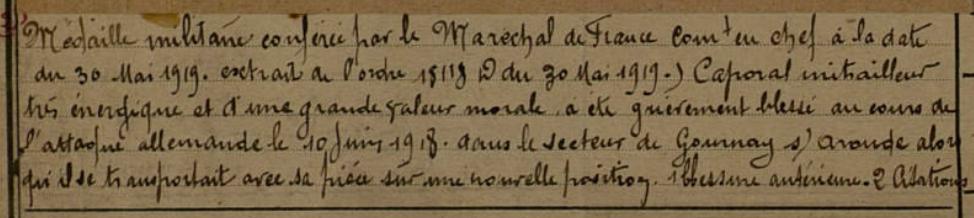 Médaille militaire conférée par le Maréchal de France Comt en chef à la date
du 30 Mai 1919. extrait de l'ordre D du 30 Mai 1919.) Caporal mitrailleur
très énergique et d'une grande valeur morale. a été guèrement blessé au cours de
l'attaque allemande le 10 Juin 1918. dans le secteur de Gournay s/ Aronde alors
qu'il se transportait avec sa pièce sur une nouvelle position. 1 blessure antérieure. 2 Citations